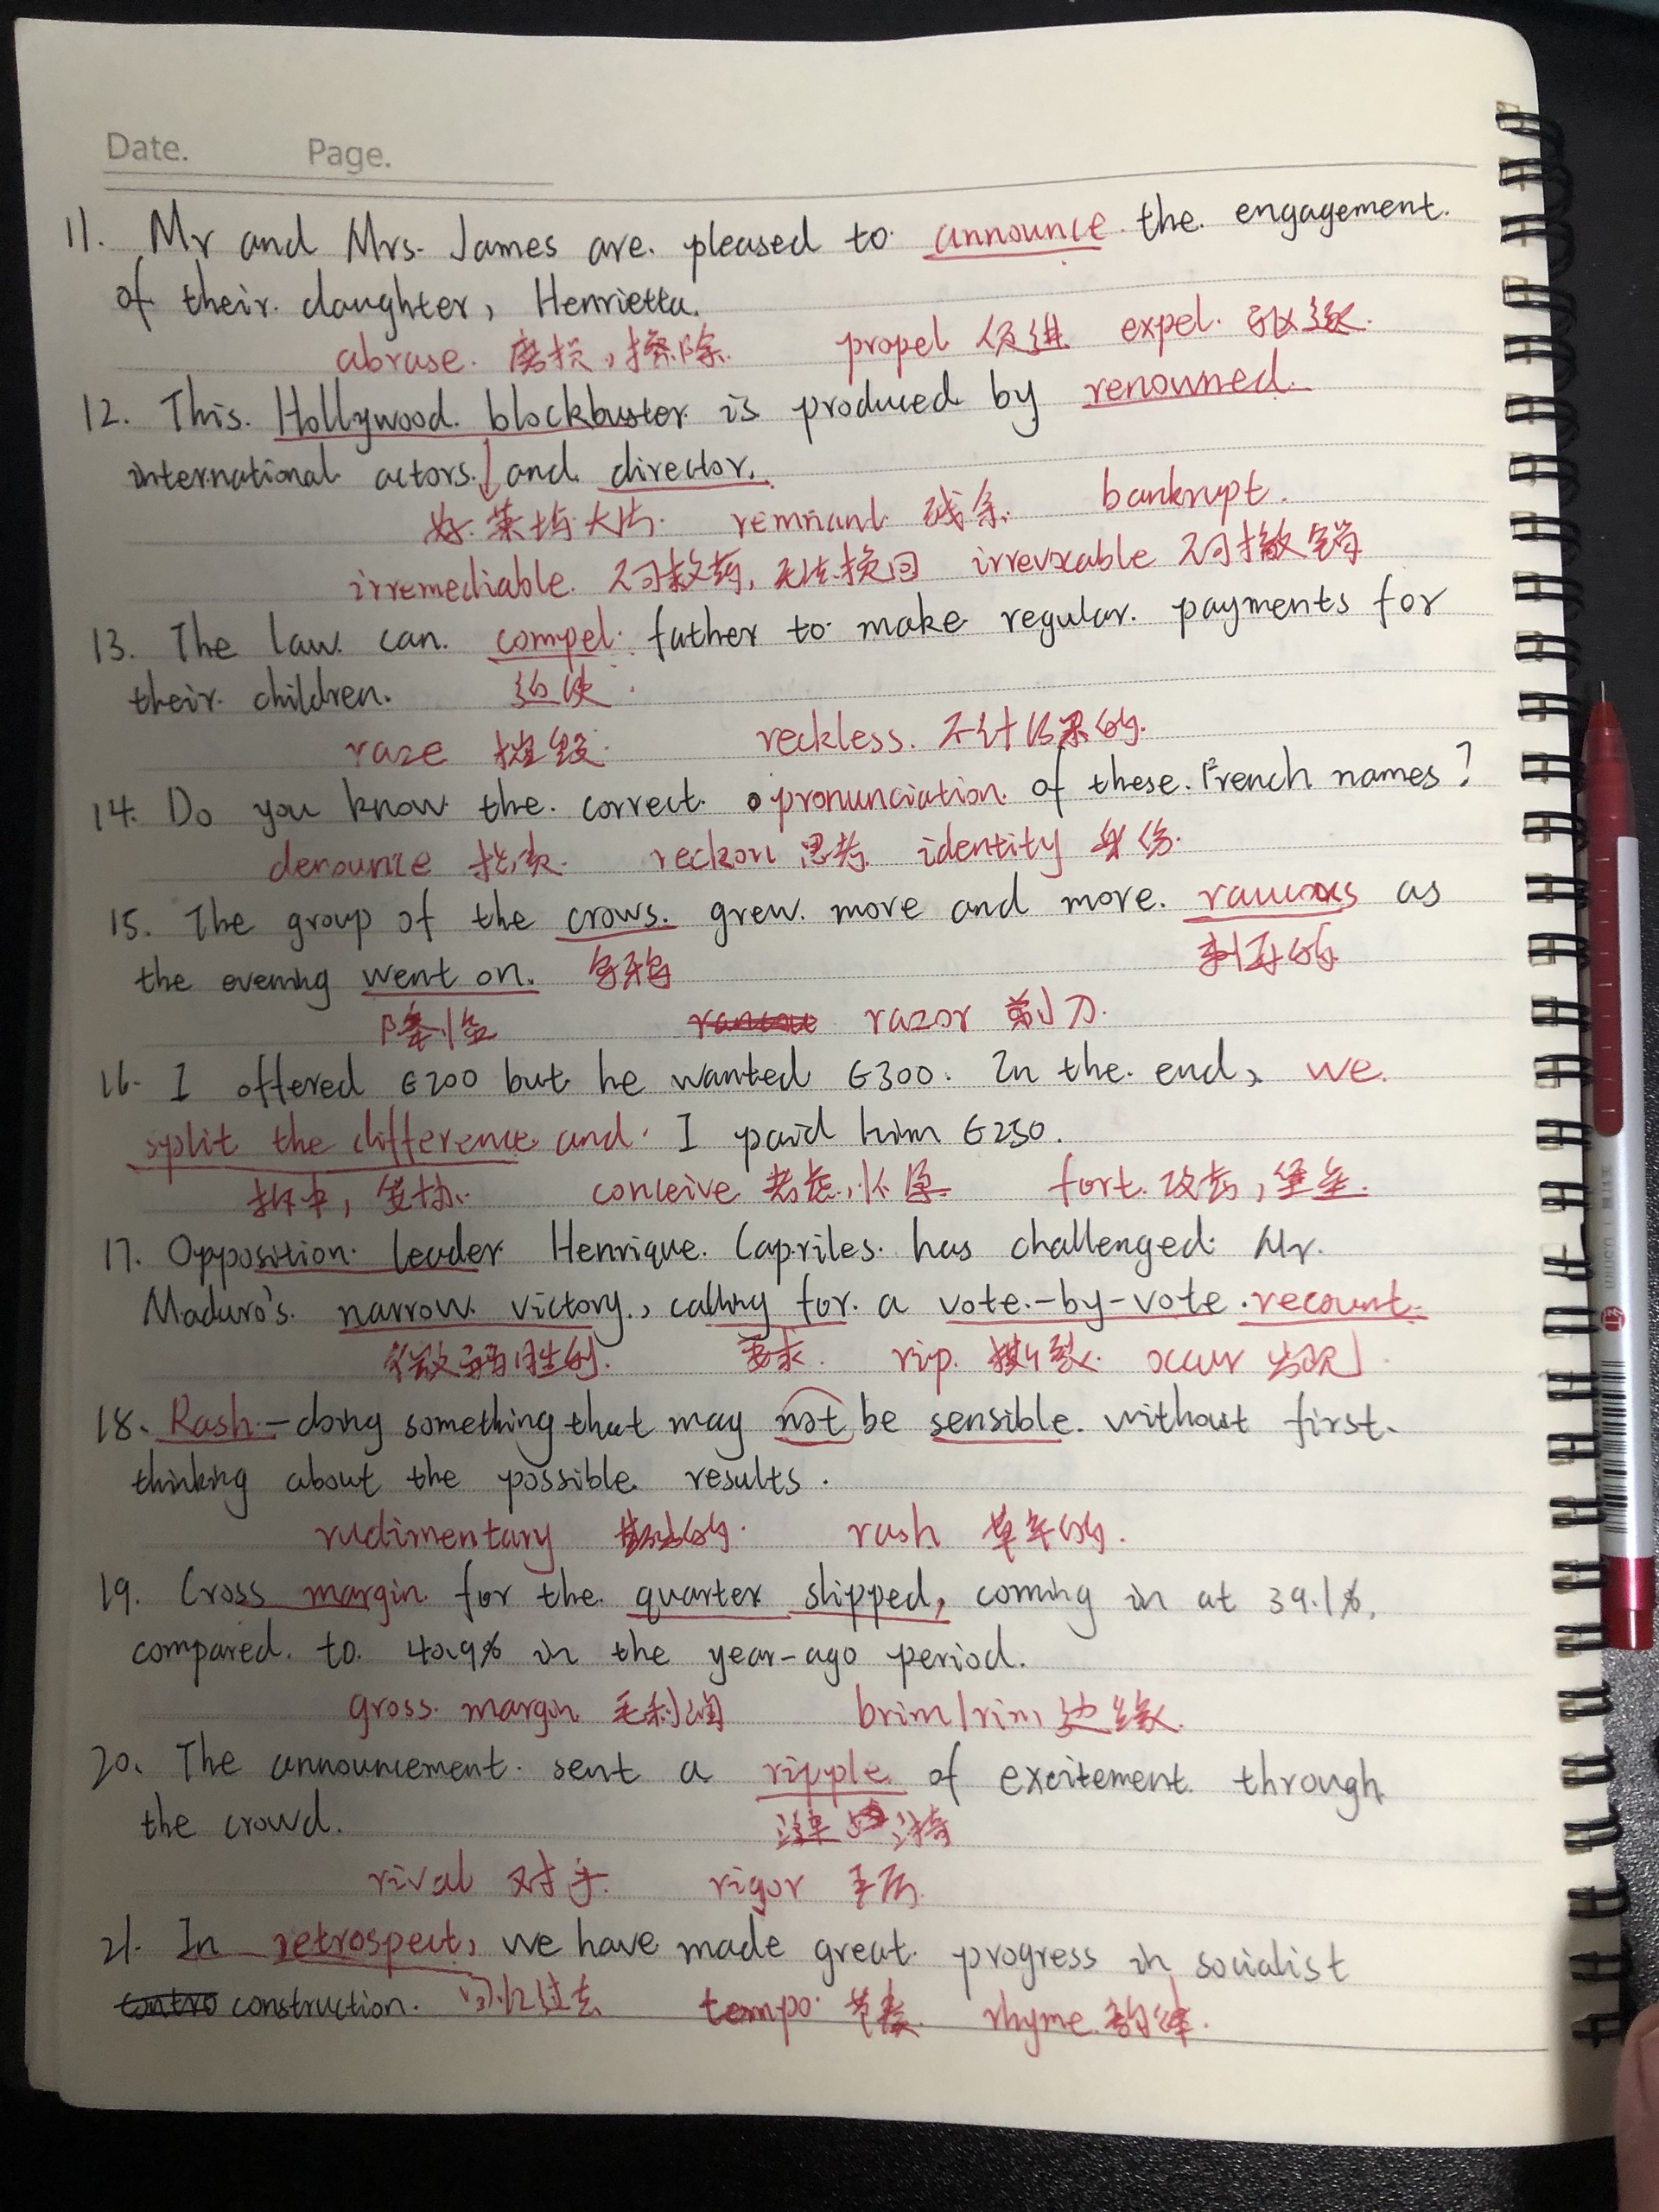 Date. Page.
11. Mr and Mrs. James are pleased to announce the engagement.
of their daughter, Henrietta.
abrase. 磨损,擦除. propel 促进 expel. 驱逐.
12. This Hollywood blockbuster is produced by renowned
international actors and director.
好莱坞大片. remnant 残余. bankrupt.
irremediable. 不可救药,无法挽回 irrevocable 不可撤销
13. The law can compel father to make regular payments for
their children. 迫使
raze 摧毁. reckless. 不计后果的.
14. Do you know the correct pronunciation of these French names?
denounce 指责. reckon 思考 identity 身份.
15. The group of the crows. grew more and more raucous as
the evening went on. 乌鸦 刺耳的
降临 razor 剃刀.
16. I offered €200 but he wanted €300. In the end, we
split the difference and I paid him €250.
折中,妥协. conceive 考虑,怀孕 fort. 攻击,堡垒.
17. Opposition leader Henrique Capriles has challenged Mr.
Maduro's narrow victory, calling for a vote-by-vote recount.
要求. rip. 撕裂. occur 出现
18. Rash - doing something that may not be sensible without first
thinking about the possible results.
rudimentary rash 草率的.
19. Cross margin for the quarter slipped, coming in at 39.1%,
compared to 40.9% in the year-ago period.
gross margin 毛利润 brim/rim 边缘.
20. The announcement sent a ripple of excitement through
the crowd. 涟漪
rival 对手. rigor
21. In retrospect, we have made great progress in socialist
construction. 回忆过去 tempo 节奏. rhyme 韵律.